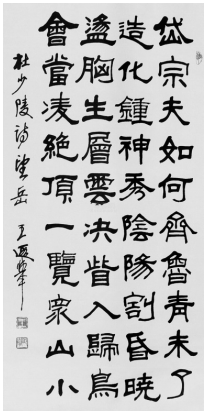 岱宗夫如何齊魯青未了
造化鍾神秀陰陽割昏曉
盪胸生層雲決眥入歸鳥
會當凌絕頂一覽眾山小
杜少陵詩望岳 王遐舉